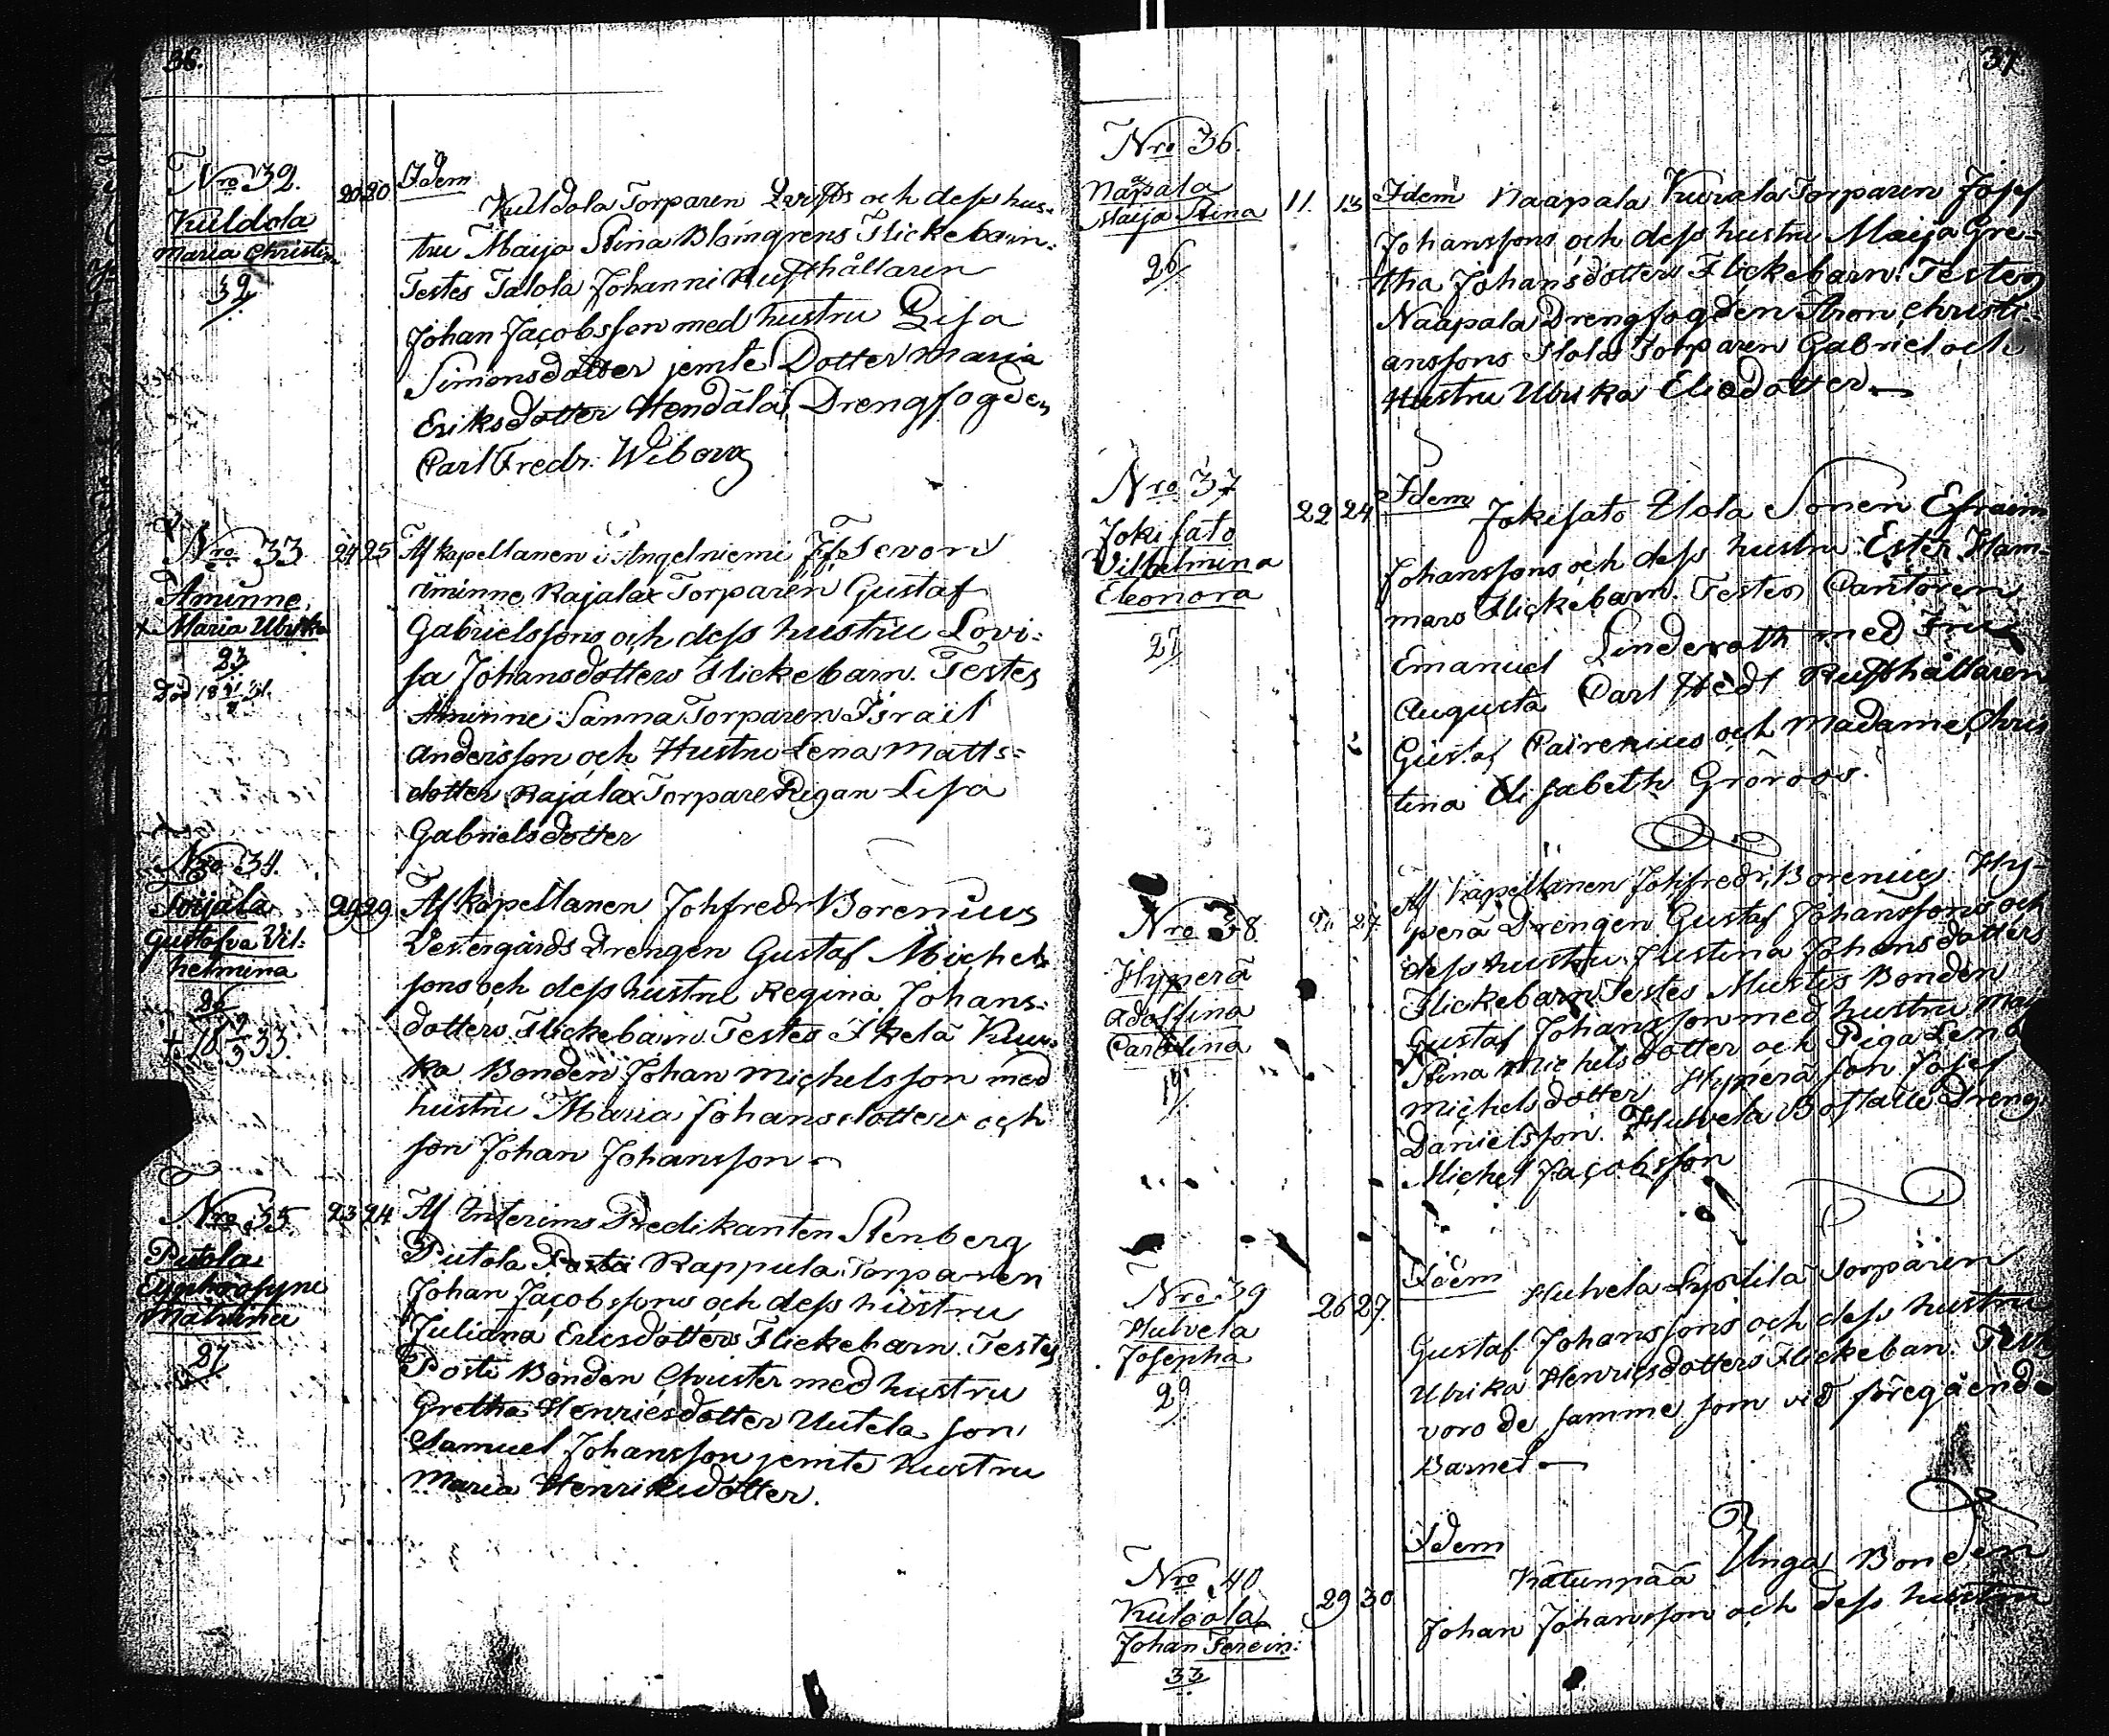 36.
Nro 32.
Kuldola
Maria Christin
32
20 20
Idem
Kuldola Torparen och dess hus-
tru Maija Stina Blomgrens Flickebarn.
Testes Talola Johanni Rusthållaren
Johan Jacobsson med hustru Lisa
Simonsdotter jemte Dotter Maria
Eriksdotter Hendälä Drengfogden
Carl Fredr. Wiborg
Nro 33
Åminne
x Maria Ulrika
23
Död 18
24 25
Af Kapellanen i Angelniemi
Åminne Rajalax Torparen Gustaf
Gabrielssons och dess hustru Lovi-
sa Johansdotters Flickebarn. Testes
Åminne Sanna Torparen Israel
Andersson och Hustru Lena Matts-
dotter Rajalax Torpare Pigan Lisa
Gabrielsdotter
Nro 34.
Gustafva Vil-
helmina
26
29 29
Af Kapellanen Joh fredr Borenius
Vestergårds Drengen Gustaf Michels-
sons och dess hustru Regina Johans-
dotters Flickebarn. Testes Ikelä Kur-
ka Bonden Johan Michelsson med
hustru Maria Johansdotter och
son Johan Johansson
Nro 35.
Putola
Euphrosyne
Mathilda
27
23 24
Af Interims Predikanten Stenberg
Putola Rappula Torparen
Johan Jacobssons och dess hustru
Juliana Ericsdotters Flickebarn. Testes
Posti Bonden Christer med hustru
Gretha Henricsdotter Uutela son
Samuel Johansson jemte hustru
Maria Henriksdotter.
37
Nro 36.
Naapala
Maija Stina
26
11. 13
Idem Naapala Kurala Torparen Josef
Johanssons och dess hustru Maija Gre-
tha Johansdotters Flickebarn. Testes
Naapala Drengfogden Aron Christi-
anssons Torparen Gabriel och
Hustru Ulrika Eliedotter
Nro 37
Jokisato
Vilhelmina
Eleonora
27
22 24
Idem
Jokisato Ulola Sonen Efraim
Johanssons och dess hustru Ester Ham-
mars Flickebarn. Testes Cantoren
Emanuel Linderoth med Fru
Augusta Carl Rusthållaren
Gustaf Pairenius och Madame Chris
tina Elisabeth Gröroos.
Nro 38.
Hyperä
Adolfina
Carolina
19
27.
Af Kapellanen Joh fredr. Borenius Hy-
perä Drengen Gustaf Johanssons och
dess hustru Justina Johansdotters
Flickebarn Testes Mustis Bonden
Gustaf Johansson med hustru Maj
Stina Michelsdotter och Piga Lena
Michelsdotter Hyperä son Josef
Danielsson. Hulvela Boställe Dreng
Michel Jacobsson
Nro 39
Hulvela
Josepha
29
26 27.
Idem Hulvela Torparen
Gustaf Johanssons och dess hustru
Ulrika Henricsdotters Flickebarn. Test
voro de samme som vid föregående
Barnet
Nro 40
Johan
33
29 30
Idem
Katunpää Unga Bonden
Johan Johansson och dess hustru